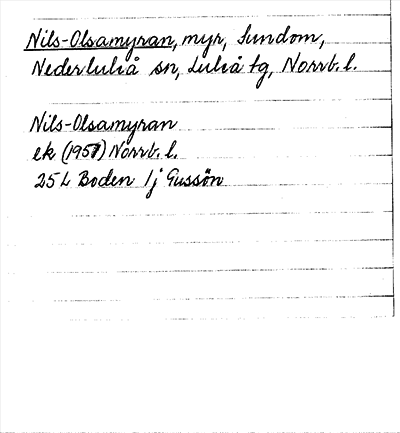 Nils-Olsamyran, myr, Sundom,
Nederluleå sn, Luleå tg, Norrb. l.
Nils-Olsamyran
ek (1957) Norrb. l.
25 L Boden 1j Gussön